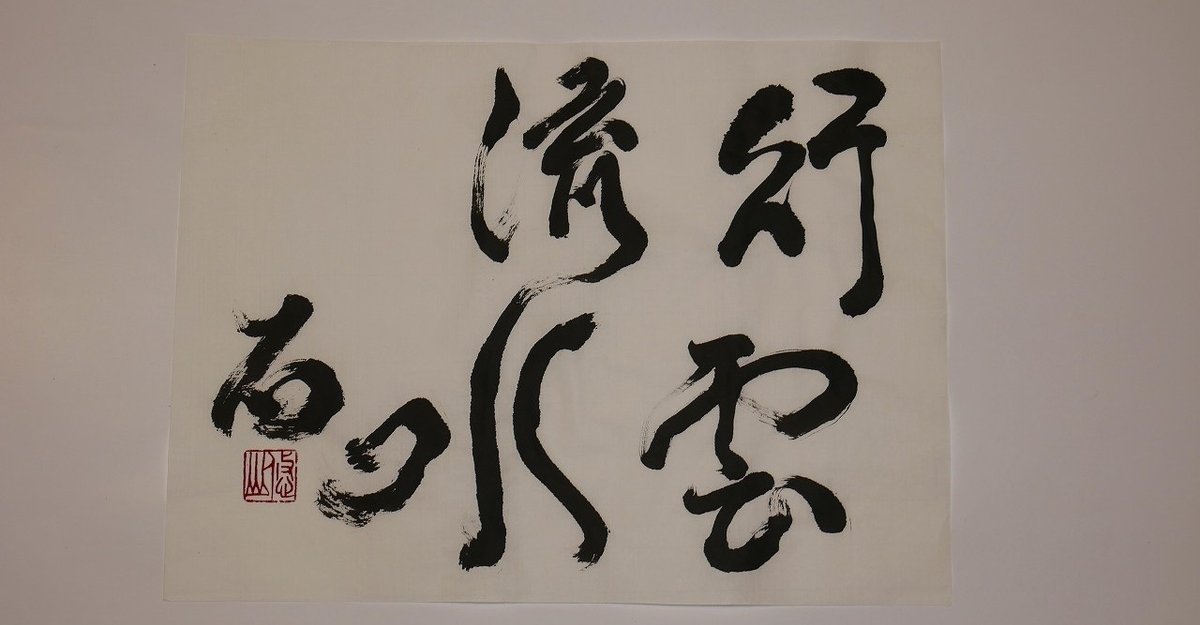 行雲
流水
石